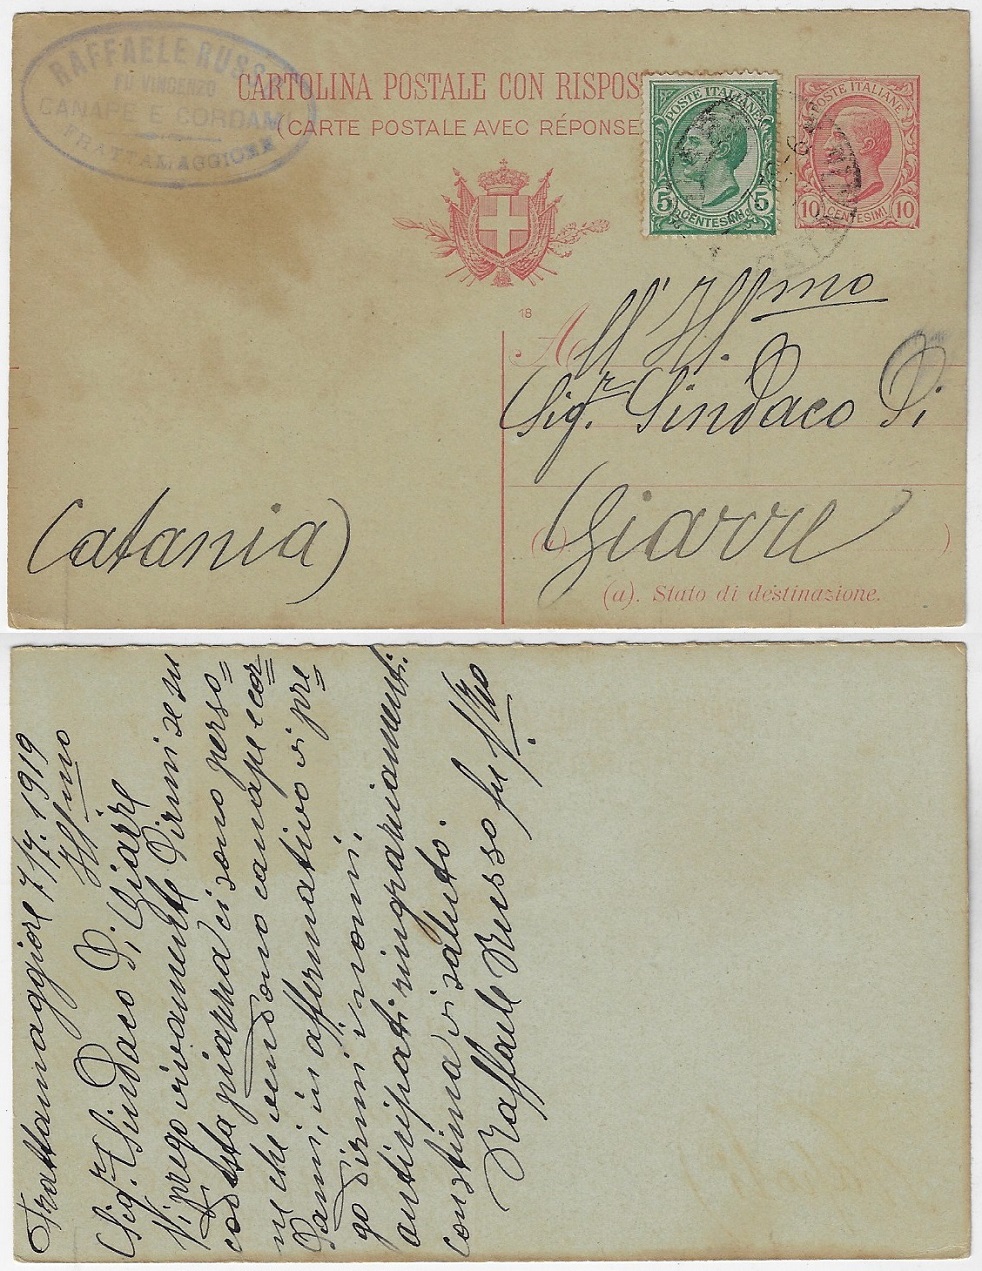 RAFFAELE RUSSO
FU VINCENZO
CANAPE E CORDAMI
FRATTAMAGGIORE
CARTOLINA POSTALE CON RISPOS
(CARTE POSTALE AVEC RÉPONSE
POSTE ITALIANE
5 CENTESIMI 5
POSTE ITALIANE
10 CENTESIMI 10
18
All' Ill.mo
Sig.r Sindaco Di
Giarre
(a)
Catania)
(a). Stato di destinazione.
Frattamaggiore 7/7. 1919
Ill mo
Sig.r Sindaco Di Giarre
Vi prego vivamente dirmi se su
codesta piazza ci sono perso=
ne che vendono canape e cor=
dami, in affermativo vi pre=
go dirmi i nomi.
anticipati ringraziamenti
con stima vi saluto.
Raffaele Russo fu V.nzo